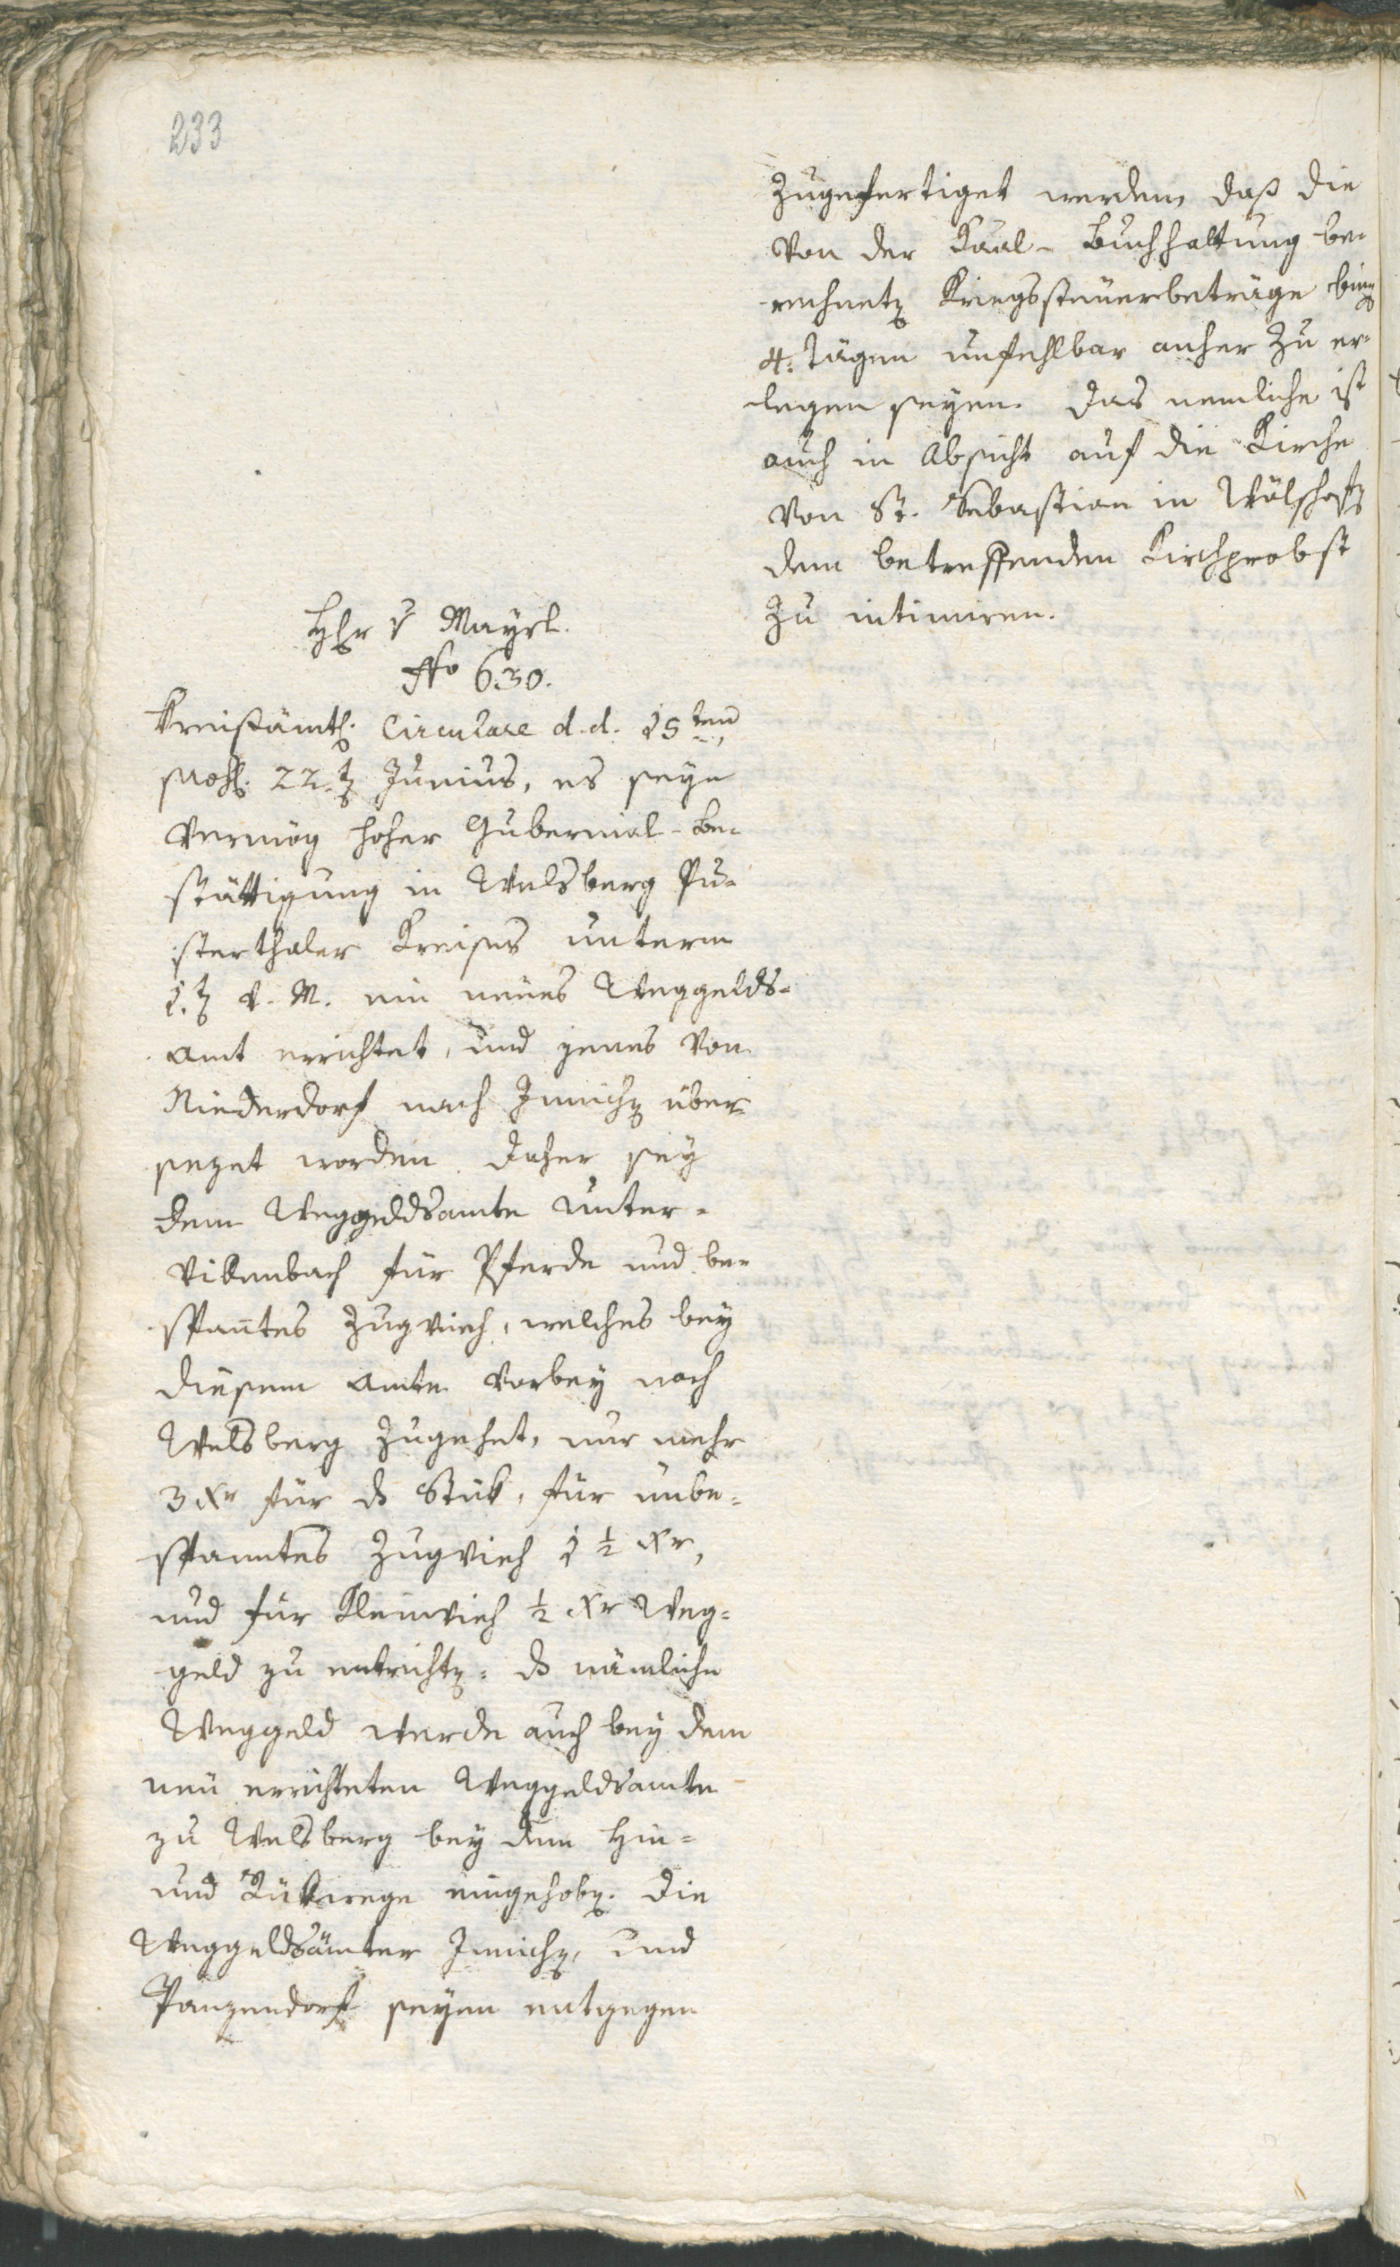 233
zugefertiget werden, daß die
von der Kaal-Buchhaltung be-
rechnete Kriegssteuerbeträge bin̄
4. Tägen unfehlbar anher zu er-
legen seyen. Das nemliche ist
auch in Absicht auf die Kirche
von St. Sebastian in Wölschoft
dem betreffenden Kirchprobst
zu intimiren.
Hhr v Mayrl.
Nro 630.
Kreißämtl. Circulare d. d. 15ten
22.t Junius, es seye
vermög hoher Gubernial-Be-
stättigung in Welsberg Pu-
sterthaler Kreises unterm
1.t v. M. ein neues Weggelds-
amt errichtet, und jenes von
Niederdorf nach Innichen über-
sezet worden. Daher sey
dem Weggeldsamte Unter-
vikenbach für Pferde und be-
span̄tes Zugvieh, welches bey
diesem Amte vorbey nach
Welsberg zugehet, nur mehr
3 Xr für ds Stük, für unbe-
spanntes Zugvieh 1 ½ Xr,
und für Kleinvieh ½ Xr Weg-
geld zu entrichten. ds nämliche
Weggeld werde auch bey dem
neu errichteten Weggeldsamte
zu Welsberg bey dem Hin-
und Rükwege eingehoben. Die
Weggeldsämter Innichen, und
Panzendorf seyen entgegen